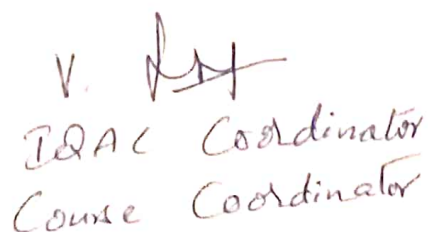 V.
IQAC Coordinator
Course Coordinator